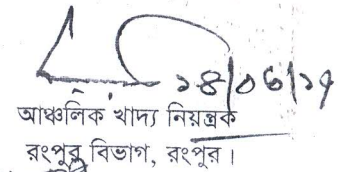 ১৪/০৬/১৭
আঞ্চলিক খাদ্য নিয়ন্ত্রক
রংপুর বিভাগ, রংপুর।